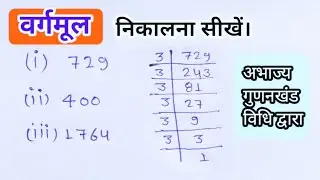 वर्गमूल निकालना सीखें।
(i) 729
(ii) 400
(iii) 1764
3 729
3 243
3 81
3 27
3 9
3 3
1
अभाज्य
गुणनखंड
विधि द्वारा